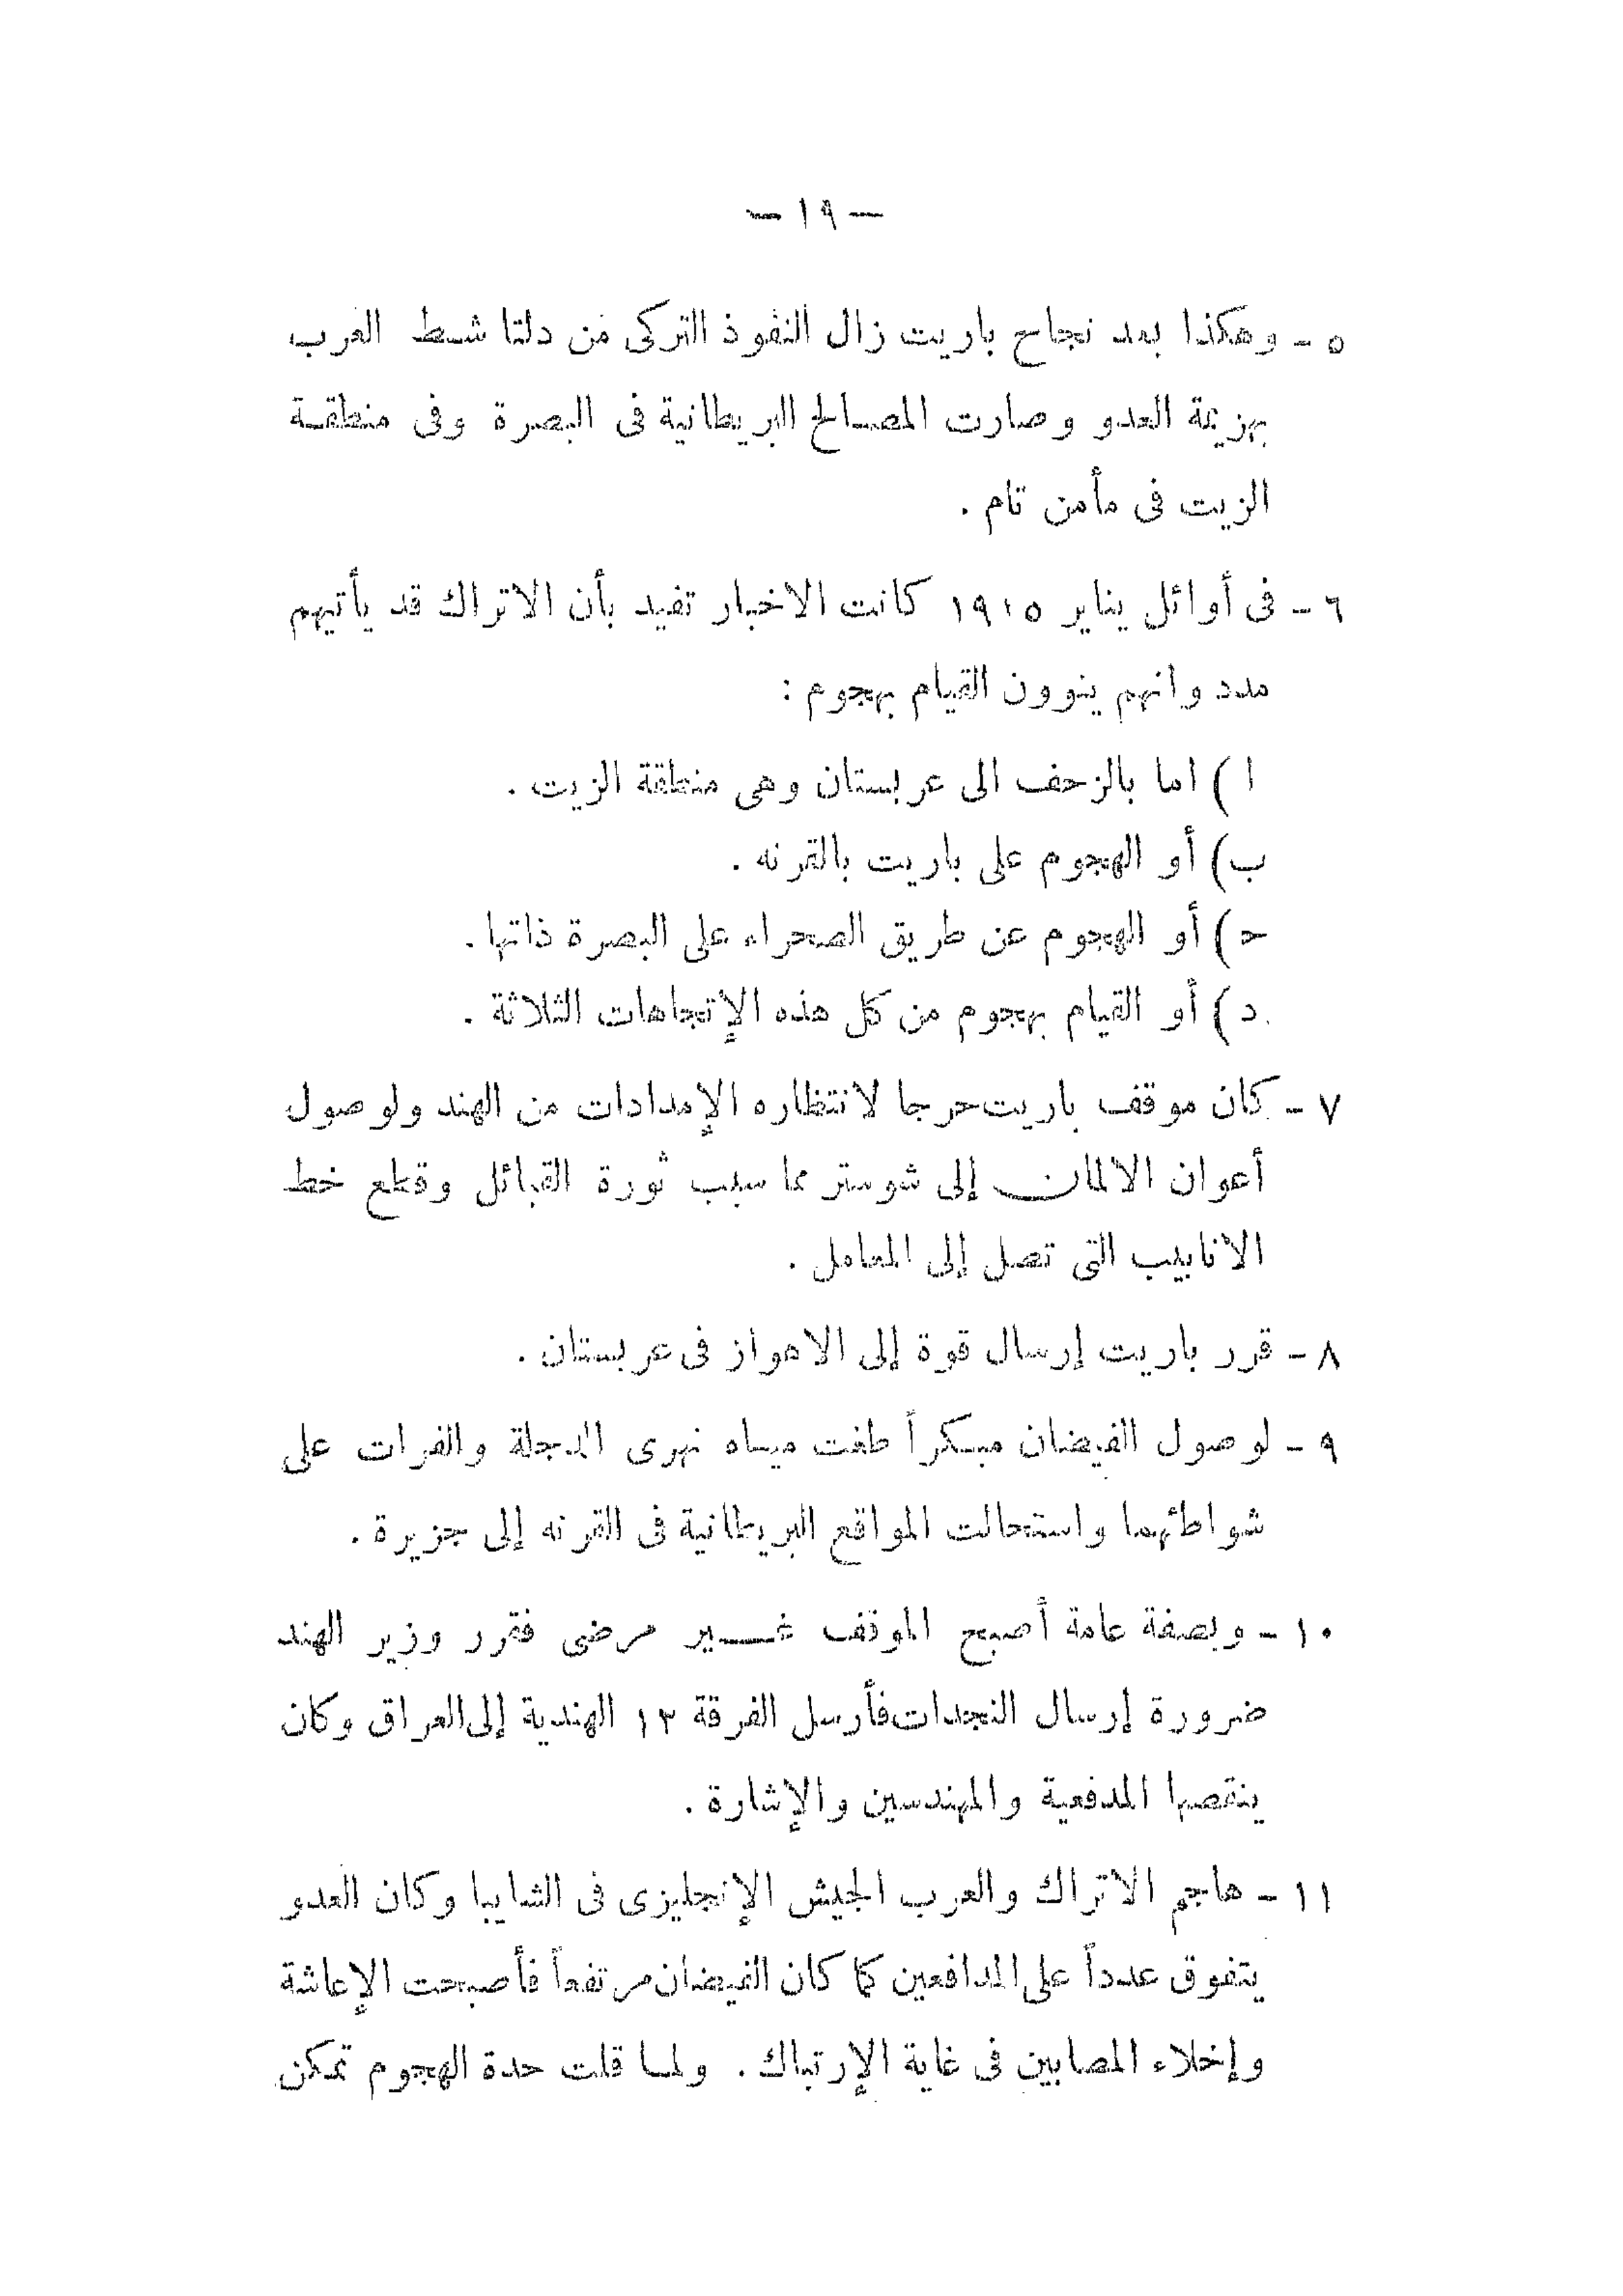 — ١٩ —
٥ - وهكذا بعد نجاح باريت زال النفوذ التركى من دلتا شط العرب
بهزيمة العدو وصارت المصالح البريطانية فى البصرة وفى منطقة
الزيت فى مأمن تام .
٦ - فى أوائل يناير ١٩١٥ كانت الاخبار تفيد بأن الاتراك قد يأتيهم
مدد وانهم ينوون القيام بهجوم :
ا ) اما بالزحف الى عربستان وهى منطقة الزيت .
ب) أو الهجوم على باريت بالقرنه .
ح ) أو الهجوم عن طريق الصحراء على البصرة ذاتها .
د ) أو القيام بهجوم من كل هذه الإتجاهات الثلاثة .
٧ - كان موقف باريت حرجا لانتظاره الإمدادات من الهند ولوصول
أعوان الالمان إلى شوستر مما سبب ثورة القبائل وقطع خط
الانابيب التى تصل إلى المعامل .
٨ - قرر باريت إرسال قوة إلى الاهواز فى عربستان .
٩ - لوصول الفيضان مبكراً طغت مياه نهرى الدجلة والفرات على
شواطئهما واستحالت المواقع البريطانية فى القرنه إلى جزيرة .
١٠ - وبصفة عامة أصبح الموقف غير مرضى فقرر وزير الهند
ضرورة إرسال النجدات فأرسل الفرقة ١٣ الهندية إلى العراق وكان
ينقصها المدفعية والمهندسين والإشارة .
١١ - هاجم الاتراك والعرب الجيش الإنجليزى فى الشايبا وكان العدو
يتفوق عدداً على المدافعين كما كان الفيضان مرتفعاً فأصبحت الإعاشة
وإخلاء المصابين فى غاية الإرتباك . ولما قلت حدة الهجوم تمكن